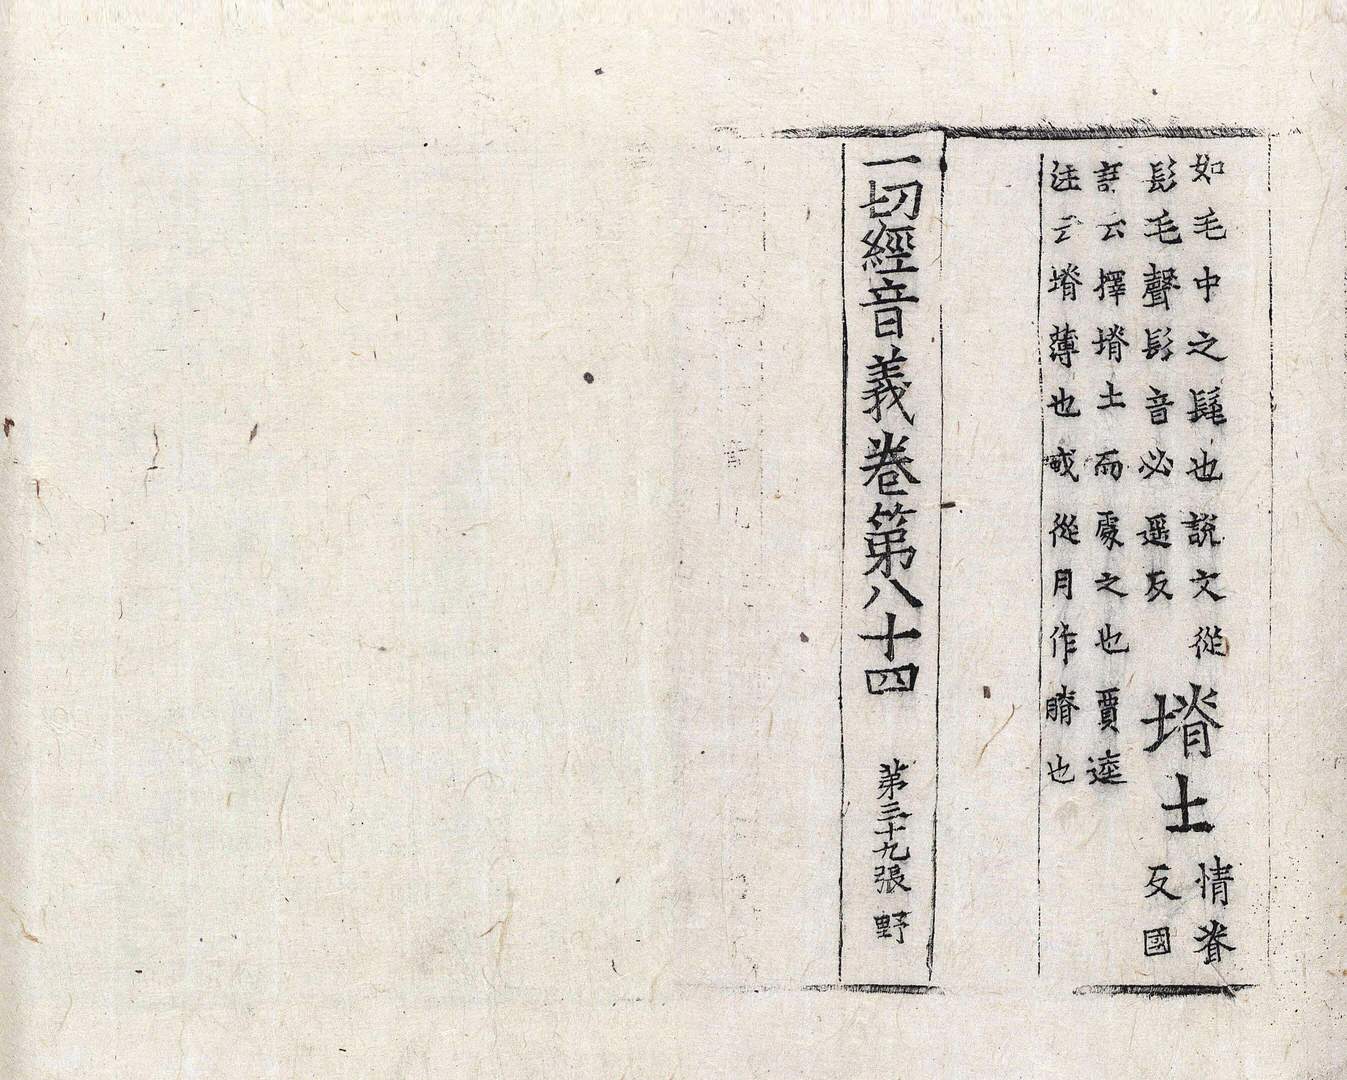 如毛中之髦也說文從
髟毛聲髟音必遥反
塉土
情脊
反國
語云擇塉土而處之也賈逵
注云塉薄也或從月作膌也
一切經音義卷第八十四
第三十九張 野